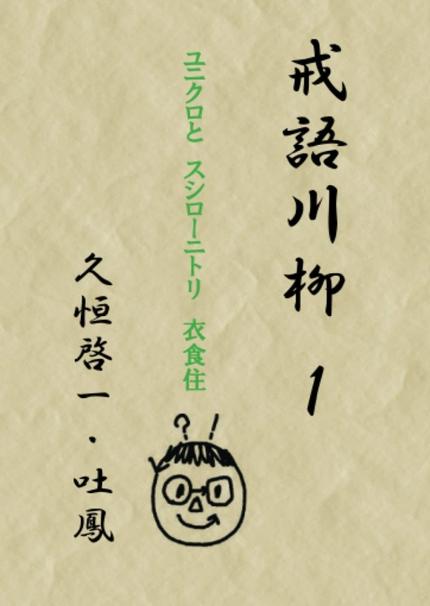 戒語川柳 1
ユニクロと スシローニトリ 衣食住
久恒啓一・吐鳳
? !